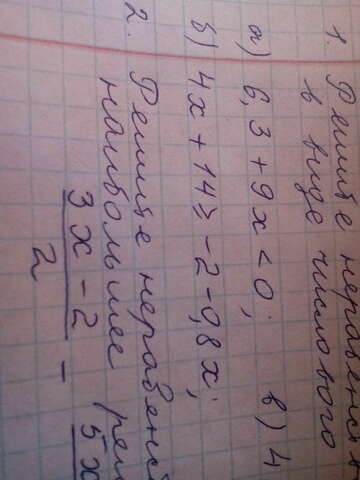 1. Решите неравенств
в виде числового
а) 6,3 + 9x < 0; в) 4
б) 4x + 14 ≥ -2 - 0,8x;
2. Решите неравенс
наибольшее реш
3x - 2 / 2 - 5x